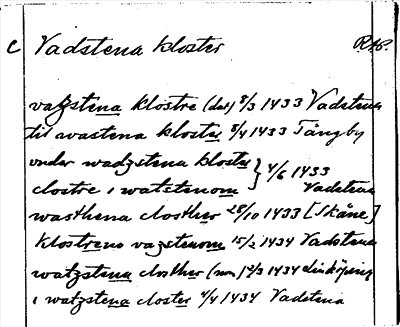 C Vadstena kloster RAP.
vatzstena klostre (dat) 8/3 1433 Vadstena
til wastena kloster 5/4 1433 Tångby
under wadzstena kloster
clostre i watstenom } 4/6 1433 Vadstena
wasthena closther 28/10 1433 [Skåne]
Klostreno vazstenom 15/2 1434 Vadstena
watzstena closther 1434 Linköping
i watzstena closter 4/4 1434 Vadstena